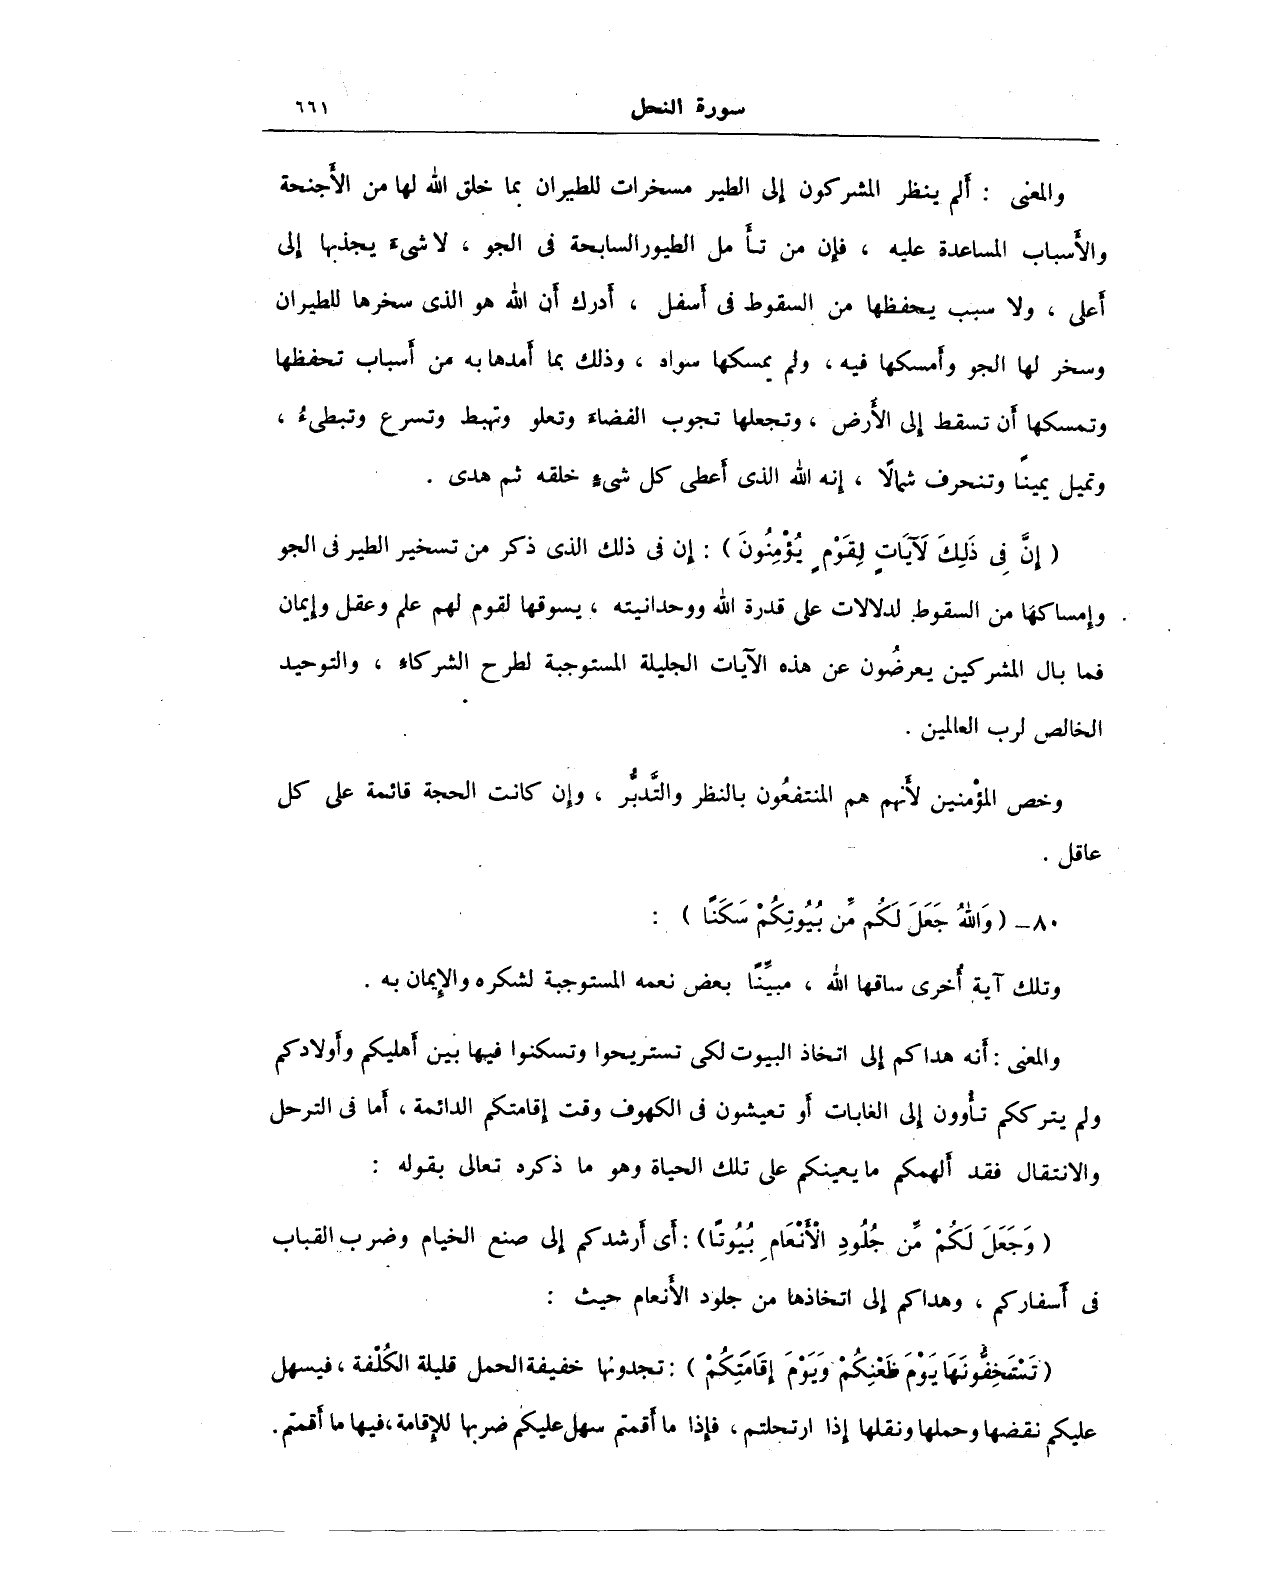 سورة النحل ٦٦١
والمعنى : أَلم ينظر المشركون إلى الطير مسخرات للطيران بما خلق الله لها من الأَجنحة
والأَسباب المساعدة عليه ، فإن من تأَمل الطيور السابحة فى الجو ، لا شىء يجذبها إلى
أَعلى ، ولا سبب يحفظها من السقوط فى أَسفل ، أَدرك أَن الله هو الذى سخرها للطيران
وسخر لها الجو وأَمسكها فيه ، ولم يمسكها سواه ، وذلك بما أَمدها به من أَسباب تحفظها
وتمسكها أَن تسقط إلى الأَرض ، وتجعلها تجوب الفضاءَ وتعلو وتهبط وتسرع وتبطىءُ ،
وتميل يمينًا وتنحرف شمالًا ، إنه الله الذى أَعطى كل شىءٍ خلقه ثم هدى .
( إِنَّ فِى ذَلِكَ لَآيَاتٍ لِقَوْمٍ يُؤْمِنُونَ ) : إن فى ذلك الذى ذكر من تسخير الطير فى الجو
وإمساكها من السقوط لدلالات على قدرة الله ووحدانيته ، يسوقها لقوم لهم علم وعقل وإيمان
فما بال المشركين يعرضُون عن هذه الآيات الجليلة المستوجبة لطرح الشركاءِ ، والتوحيد
الخالص لرب العالمين .
وخص المؤْمنين لأَنهم هم المنتفعُون بالنظر والتَّدبُّر ، وإن كانت الحجة قائمة على كل
عاقل .
٨٠ـ ( وَاللهُ جَعَلَ لَكُم مِّن بُيُوتِكُمْ سَكَنًا ) :
وتلك آية أُخرى ساقها الله ، مبيِّنًا بعض نعمه المستوجبة لشكره والإِيمان به .
والمعنى : أَنه هداكم إلى اتخاذ البيوت لكى تستريحوا وتسكنوا فيها بين أَهليكم وأَولادكم
ولم يترككم تأْوون إلى الغابات أَو تعيشون فى الكهوف وقت إقامتكم الدائمة ، أَما فى الترحل
والانتقال فقد أَلهمكم ما يعينكم على تلك الحياة وهو ما ذكره تعالى بقوله :
( وَجَعَلَ لَكُمْ مِّن جُلُودِ الْأَنْعَامِ بُيُوتًا ) : أَى أَرشدكم إلى صنع الخيام وضرب القباب
فى أَسفاركم ، وهداكم إلى اتخاذها من جلود الأَنعام حيث :
( تَسْتَخِفُّونَهَا يَوْمَ ظَعْنِكُمْ وَيَوْمَ إِقَامَتِكُمْ ) : تجدونها خفيفة الحمل قليلة الكُلْفة ، فيسهل
عليكم نقضها وحملها ونقلها إذا ارتحلتم ، فإذا ما أَقمتم سهل عليكم ضربها للإِقامة ، فيها ما أَقمتم .